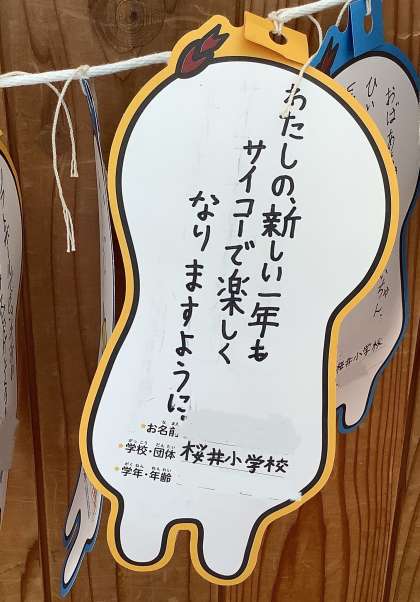 わたしの、新しい一年も
サイコーで楽しく
なりますように。
お名前
学校・団体 桜井小学校
学年・年齢
おばあ
ひい
桜井小学校